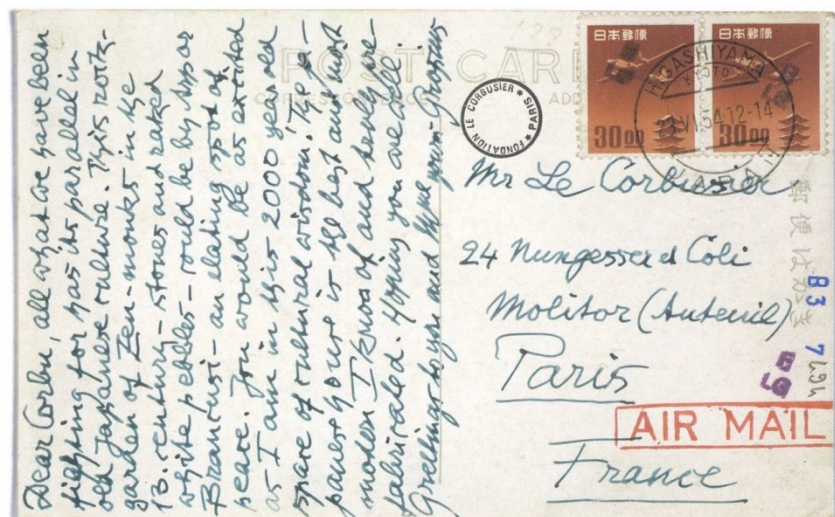 Dear Corbu, all what we have been
fighting for has its parallel in
old Japanese culture. This rock-
garden of Zen-monks in the
13. century - stones and raked
white pebbles - could be by Arp or
Brancusi - an elating spot of
peace. You would be as excited
as I am in this 2000 year old
space of cultural wisdom! The Ja-
panese house is the best and most
modern I know of and truly pre-
fabricated. Hoping you are
Greetings to you and yours Gropius
POST CARD
CORRESPONDENCE
FONDATION LE CORBUSIER * PARIS *
日本郵便
30 00
日本郵便
30 00
HIGASHIYAMA
KYOTO
VI.54.12-14
JAPAN
Mr Le Corbusier
24 Nungesser et Coli
Molitor (Auteuil)
Paris
France
AIR MAIL
郵便はがき
83 7